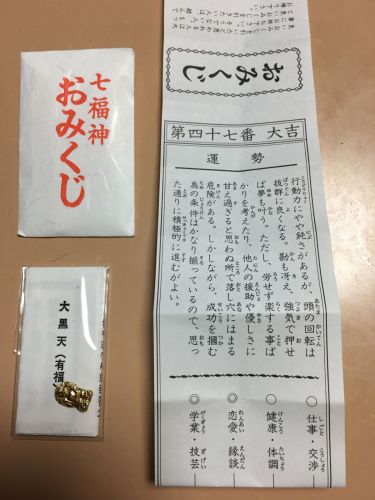 七福神
おみくじ
大黒天(有福
おみくじ
第四十七番 大吉
運勢
行動力にやや鈍さがあるが、頭の回転は
抜群に良くなる。勘も冴え、強気で押せ
ば夢も叶う。ただし、労せず楽する事ば
かりを考えたり、他人の援助や優しさに
甘え過ぎると思わぬ所で落し穴にはまる
危険がある。しかしながら、成功を掴む
為の条件はかなり揃っているので、思っ
た通りに積極的に進むがよい。
○仕事・交渉
◎健康・体調
◎恋愛・縁談
◎学業・技芸